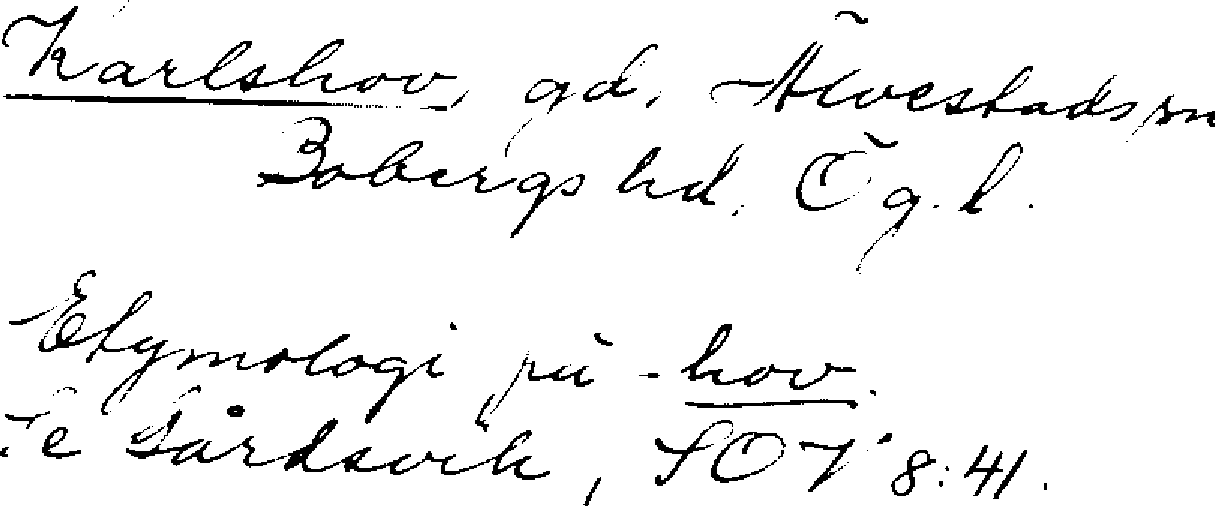 Karlshov, gd, Älvestads sn
Bobergs hd, Ög. l.
Etymologi på -hov.
Se Gårdsvik, SOV 8:41.